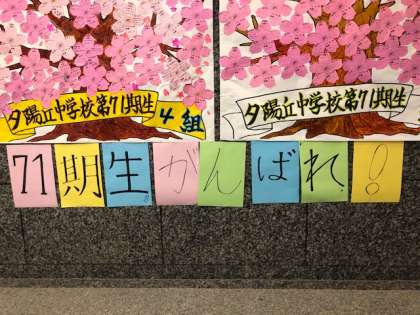 夕陽丘中学校第71期生
4組
夕陽丘中学校第71期生
71期生がんばれ!